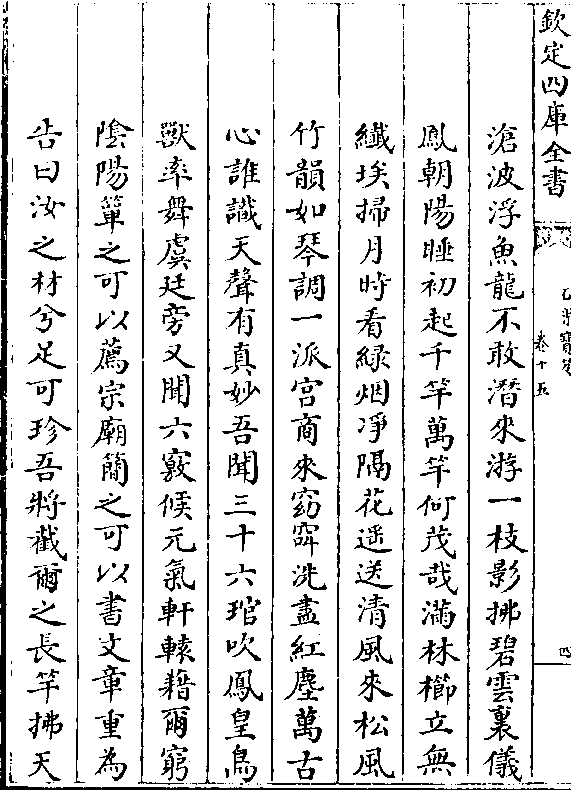 欽定四庫全書
卷十五
四
滄波浮魚龍不敢潛來游一枝影拂碧雲裏儀
鳳朝陽睡初起千竿萬竿何茂哉滿林櫛立無
纖埃掃月時看綠烟凈隔花遥送清風來松風
竹韻如琴調一派宫商來窈窕洗盡紅塵萬古
心誰識天聲有真妙吾聞三十六琯吹鳳皇鳥
獸率舞虞廷旁又聞六竅候元氣軒轅藉爾窮
陰陽簞之可以薦宗廟簡之可以書文章重為
告曰汝之材兮足可珍吾將截爾之長竿拂天